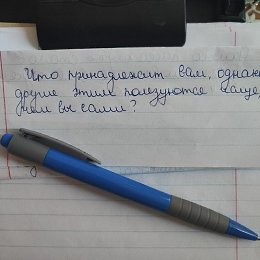 Что принадлежит вам, однако
другие этим пользуются чаще,
чем вы сами?